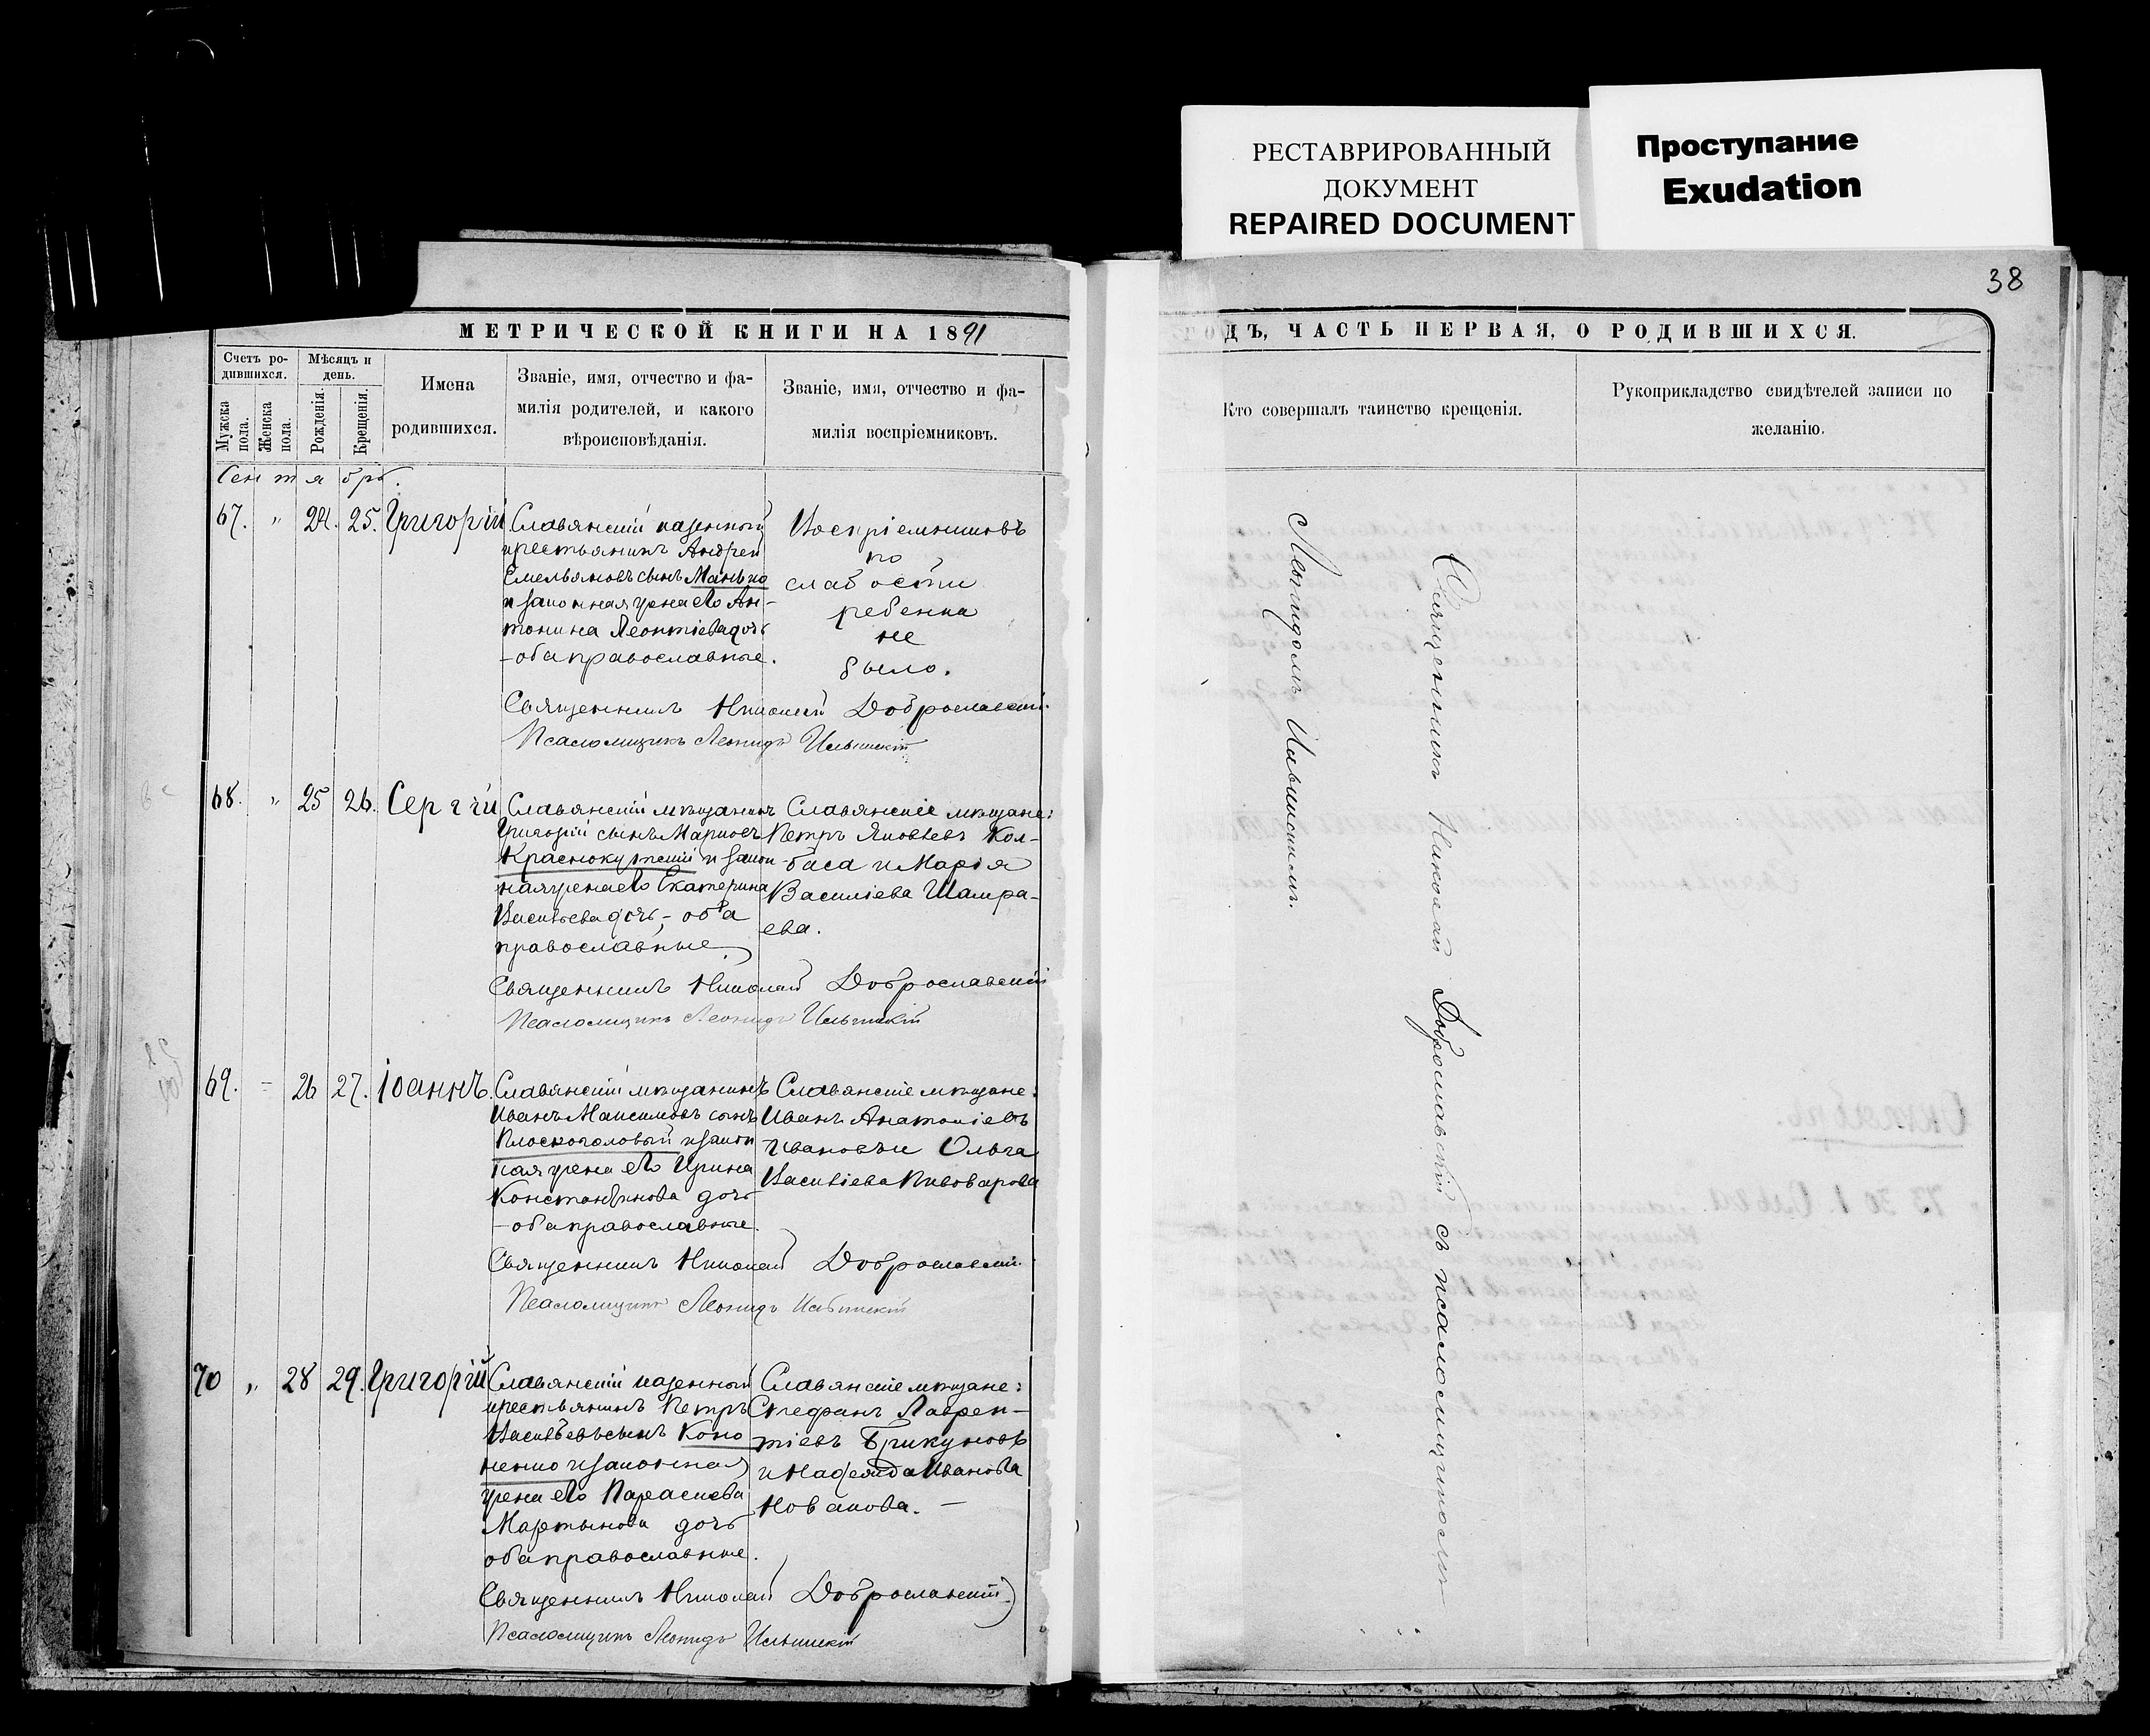 РЕСТАВРИРОВАННЫЙ
ДОКУМЕНТ
REPAIRED DOCUMENT
Проступание
Exudation
38
МЕТРИЧЕСКОЙ КНИГИ НА 1891
ГОДЪ, ЧАСТЬ ПЕРВАЯ, О РОДИВШИХСЯ.
Счетъ ро-
дившихся.
Мужска
пола.
Женска
пола.
Мѣсяцъ и
день.
Рожденія.
Крещенія.
Имена
родившихся.
Званіе, имя, отчество и фа-
милія родителей, и какого
вѣроисповѣданія.
Званіе, имя, отчество и фа-
милія воспріемниковъ.
Кто совершалъ таинство крещенія.
Рукоприкладство свидѣтелей записи по
желанію.
Сентябрь.
67. " 24. 25. Григорій
Славянскій казенный
крестьянинъ Андрей
Емельяновъ сынъ Манько
и законная жена его Ан-
тонина Леонтіева дочь
- оба православные.
Воспріемниковъ
по
слабости
ребенка
не
было.
Священникъ Николай Доброславскій.
Псаломщикъ Леонидъ Ильинскій
68. " 25 26. Сергѣй
Славянскій мѣщанинъ
Григорій сынъ Марковъ
Краснокутскій и закон
ная жена его Екатерина
Васильева дочь, - оба
православные.
Славянскіе мѣщане:
Петръ Яковлевъ Кол-
баса и Марія
Василіева Шамра-
ева.
Священникъ Николай Доброславскій
Псаломщикъ Леонидъ Ильинскій
69. - 26 27. Іоаннъ.
Славянскій мѣщанинъ
Иванъ Максимовъ сынъ
Плоскоголовый и закон
ная жена его Ирина
Константинова дочь
- оба православные.
Славянскіе мѣщане:
Иванъ Анатоліевъ
Ивановъ и Ольга
Василіева Пивоварова
Священникъ Николай Доброславскій.
Псаломщикъ Леонидъ Ильинскій
70 " 28 29. Григорій
Славянскій казенный
крестьянинъ Петръ
Васильевъ сынъ Коно
ненко и законная
жена его Параскева
Мартынова дочь
оба православные.
Славянскіе мѣщане:
Стефанъ Лаврен-
тіевъ Брикуновъ
и Надежда Иванова
Новакова. -
Священникъ Николай Доброславскій
Псаломщикъ Леонидъ Ильинскій
Священникъ Николай Доброславскій съ псаломщикомъ
Леонидомъ Ильинскимъ.